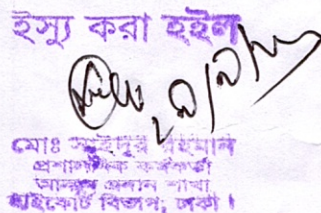 ইস্যু করা হইল
মোঃ সাইদুর রহমান
প্রশাসনিক কর্মকর্তা
আদেশ প্রদান শাখা
হাইকোর্ট বিভাগ, ঢাকা।